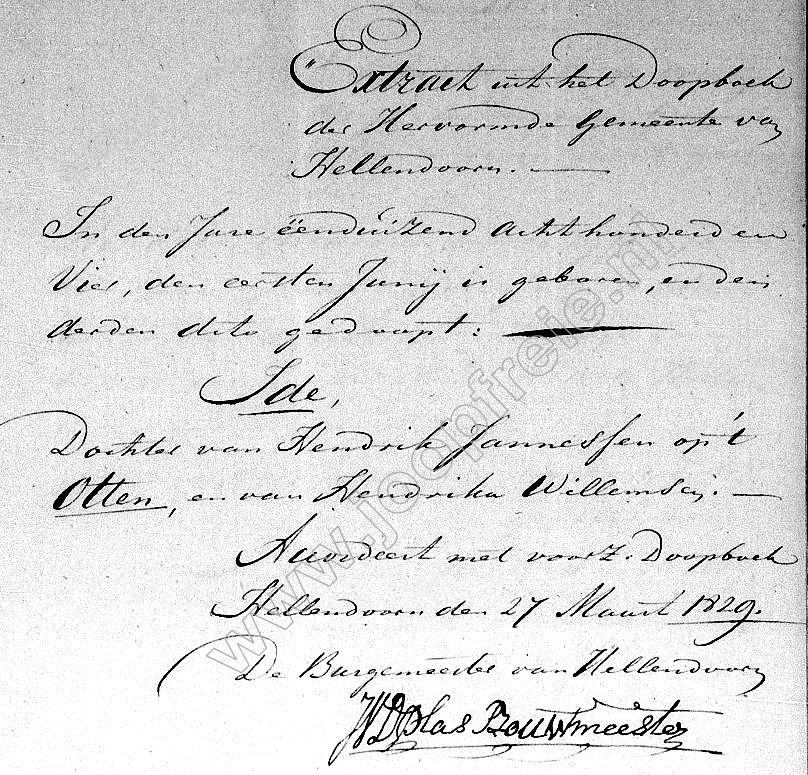 "Extract uit het Doopboek
der Hervormde Gemeente van
Hellendoorn. —
In den Jare ëenduizend achthonderd en
Vier, den eersten Junij is geboren, en den
derden dito gedoopt: —
Ide,
Dochter van Hendrik Jannessen op't
Otten, en van Hendrika Willemsen. —
Accordeert met voorz. Doopboek
Hellendoorn den 27 Maart 1829.
De Burgemeester van Hellendoorn
Plas Bouwmeester
www.joopfreie.nl